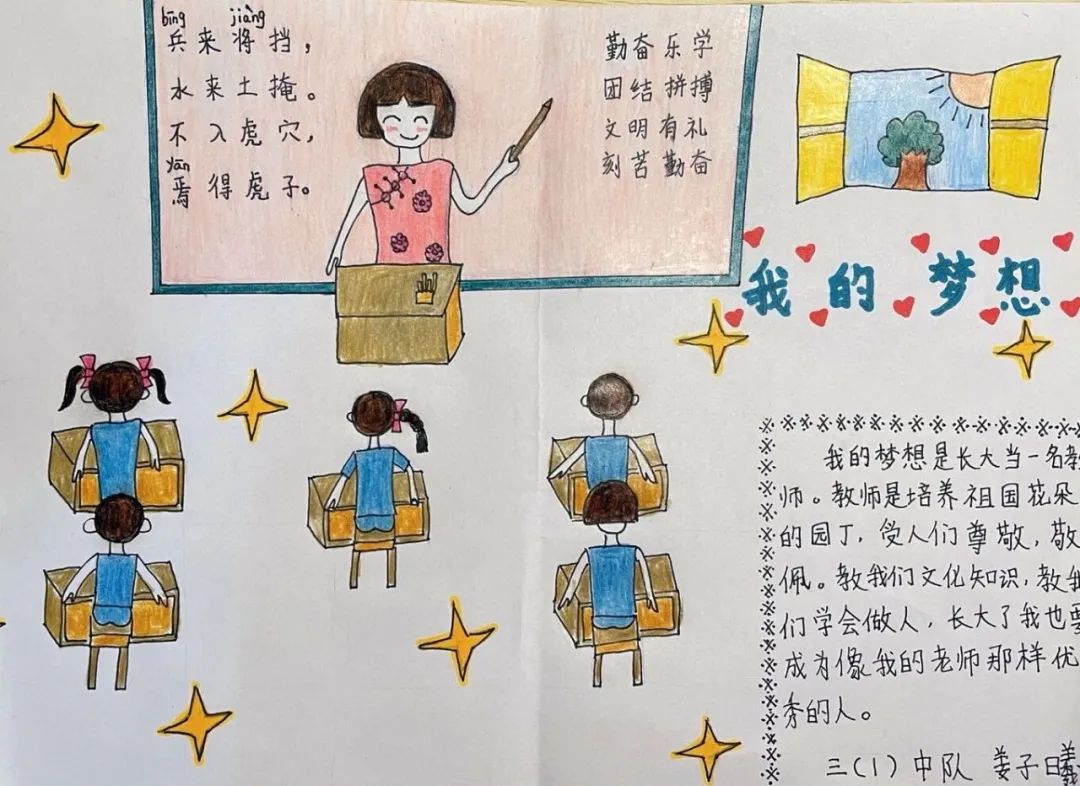 bīng jiàng
兵来将挡，
水来土掩。
不入虎穴，
yān
焉得虎子。
勤奋乐学
团结拼搏
文明有礼
刻苦勤奋
我的梦想
我的梦想是长大当一名教
师。教师是培养祖国花朵
的园丁，受人们尊敬，敬
佩。教我们文化知识，教我
们学会做人，长大了我也要
成为像我的老师那样优
秀的人。
三(1)中队 姜子曦